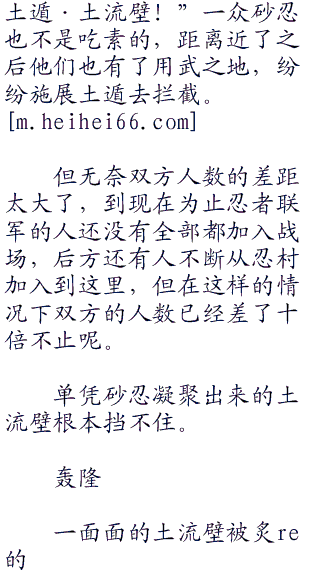 土遁·土流壁！”一众砂忍
也不是吃素的，距离近了之
后他们也有了用武之地，纷
纷施展土遁去拦截。
[m.heihei66.com]
但无奈双方人数的差距
太大了，到现在为止忍者联
军的人还没有全部都加入战
场，后方还有人不断从忍村
加入到这里，但在这样的情
况下双方的人数已经差了十
倍不止呢。
单凭砂忍凝聚出来的土
流壁根本挡不住。
轰隆
一面面的土流壁被炙re
的